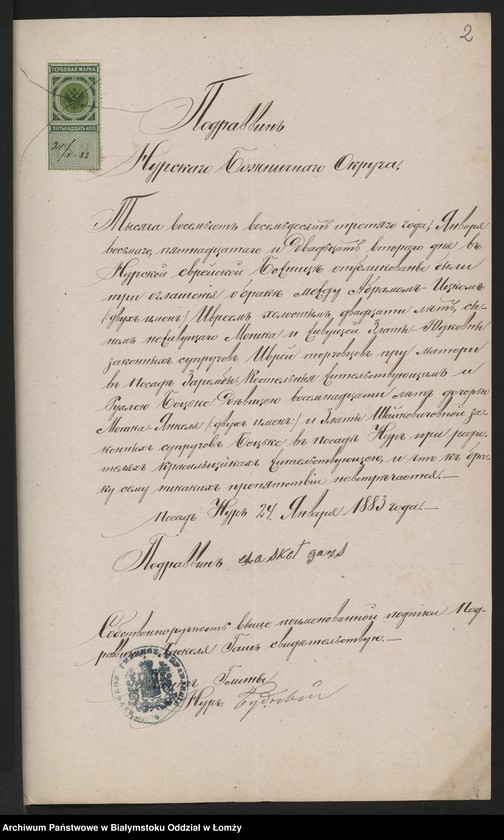 2
ГЕРБОВАЯ МАРКА
ПЯТЬНАДЦАТЬ КОП.
Подраввинъ
Нурскаго Божничнаго Округа.
Тысяча восемьсотъ восемьдесятъ третяго года, Января
восьмаго, пятнадцатаго и двадцать втораго дне въ
Нурской еврейской Божницѣ опубликованы были
три оглашенія о бракѣ между Абрамомъ-Ицкомъ
(двухъ именъ) Иврeемъ холостымъ, двадцати лѣтъ, сы-
номъ неживущаго Мошка и живущей Златы-Юдковны
законныхъ супруговъ Иврей торговцовъ при матери
въ посадѣ Зарамбы Костельныя жительствующимъ и
Рухлею Боцько дѣвицею восемнадцати лѣтъ дочерью
Мошка-Янкеля (двухъ именъ) и Златы Шайковичовной за-
конныхъ супруговъ Боцько въ посадѣ Нуръ при роди-
теляхъ жительствующею, и что къ бра-
ку сему никакихъ препятствій невстрѣчается.—
Посадъ Нуръ 24 Января 1883 года.—
Подраввинъ
Собственноручность выше поименованной подписи Под-
раввина Хаскеля Гашъ свидѣтельствую.—
Войтъ Гмины
Нуръ
Archiwum Państwowe w Białymstoku Oddział w Łomży